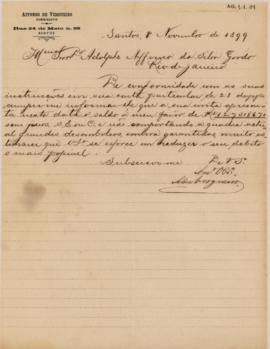 AG. 1. 4. 01
AFFONSO DE VERGUEIRO
Rua 24 de Maio n. 29
SANTOS
Santos, 8 Novembro de 1899
Illmo Snr Dr. Adolpho Affonso da Silva Gordo
Rio de Janeiro
De conformidade com as suas
instrucções em sua carta particular de
cumpre-me informar-lhe que a sua conta apresen-
ta nesta data o saldo à meu favor de
sem juros, e não comportando a quadra actu-
al grandes desembolsos, embora garantidos, muito es-
timarei que VSa se esforce em reduzir o seu debito
o mais possivel.
Subscrevo-me De V.S.